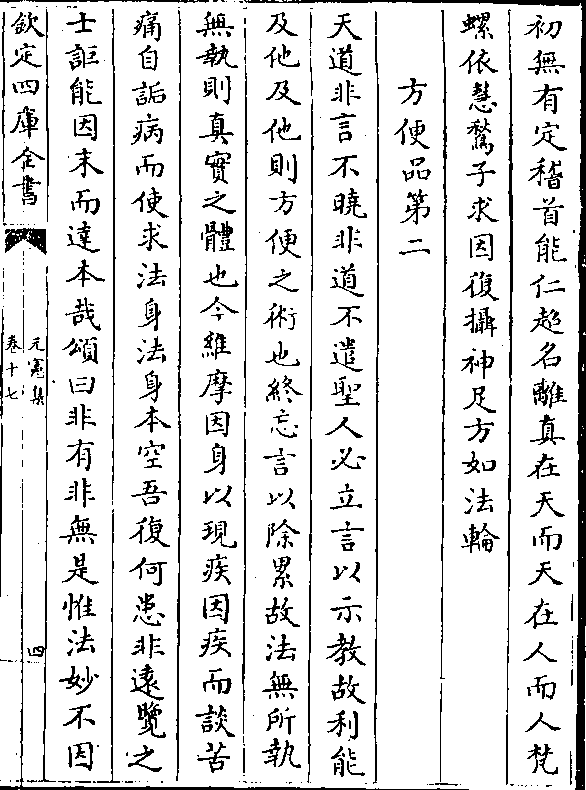 初無有定稽首能仁超名離真在天而天在人而人梵
螺依慧鶖子求因復攝神足方如法輪
方便品第二
天道非言不曉非道不遣聖人必立言以示教故利能
及他及他則方便之術也終忘言以除累故法無所執
無執則真實之體也今維摩因身以現疾因疾而談苦
痛自詬病而使求法身法身本空吾復何患非遠覽之
士詎能因末而達本哉頌曰非有非無是惟法妙不因
欽定四庫全書
元憲集
卷十七
四